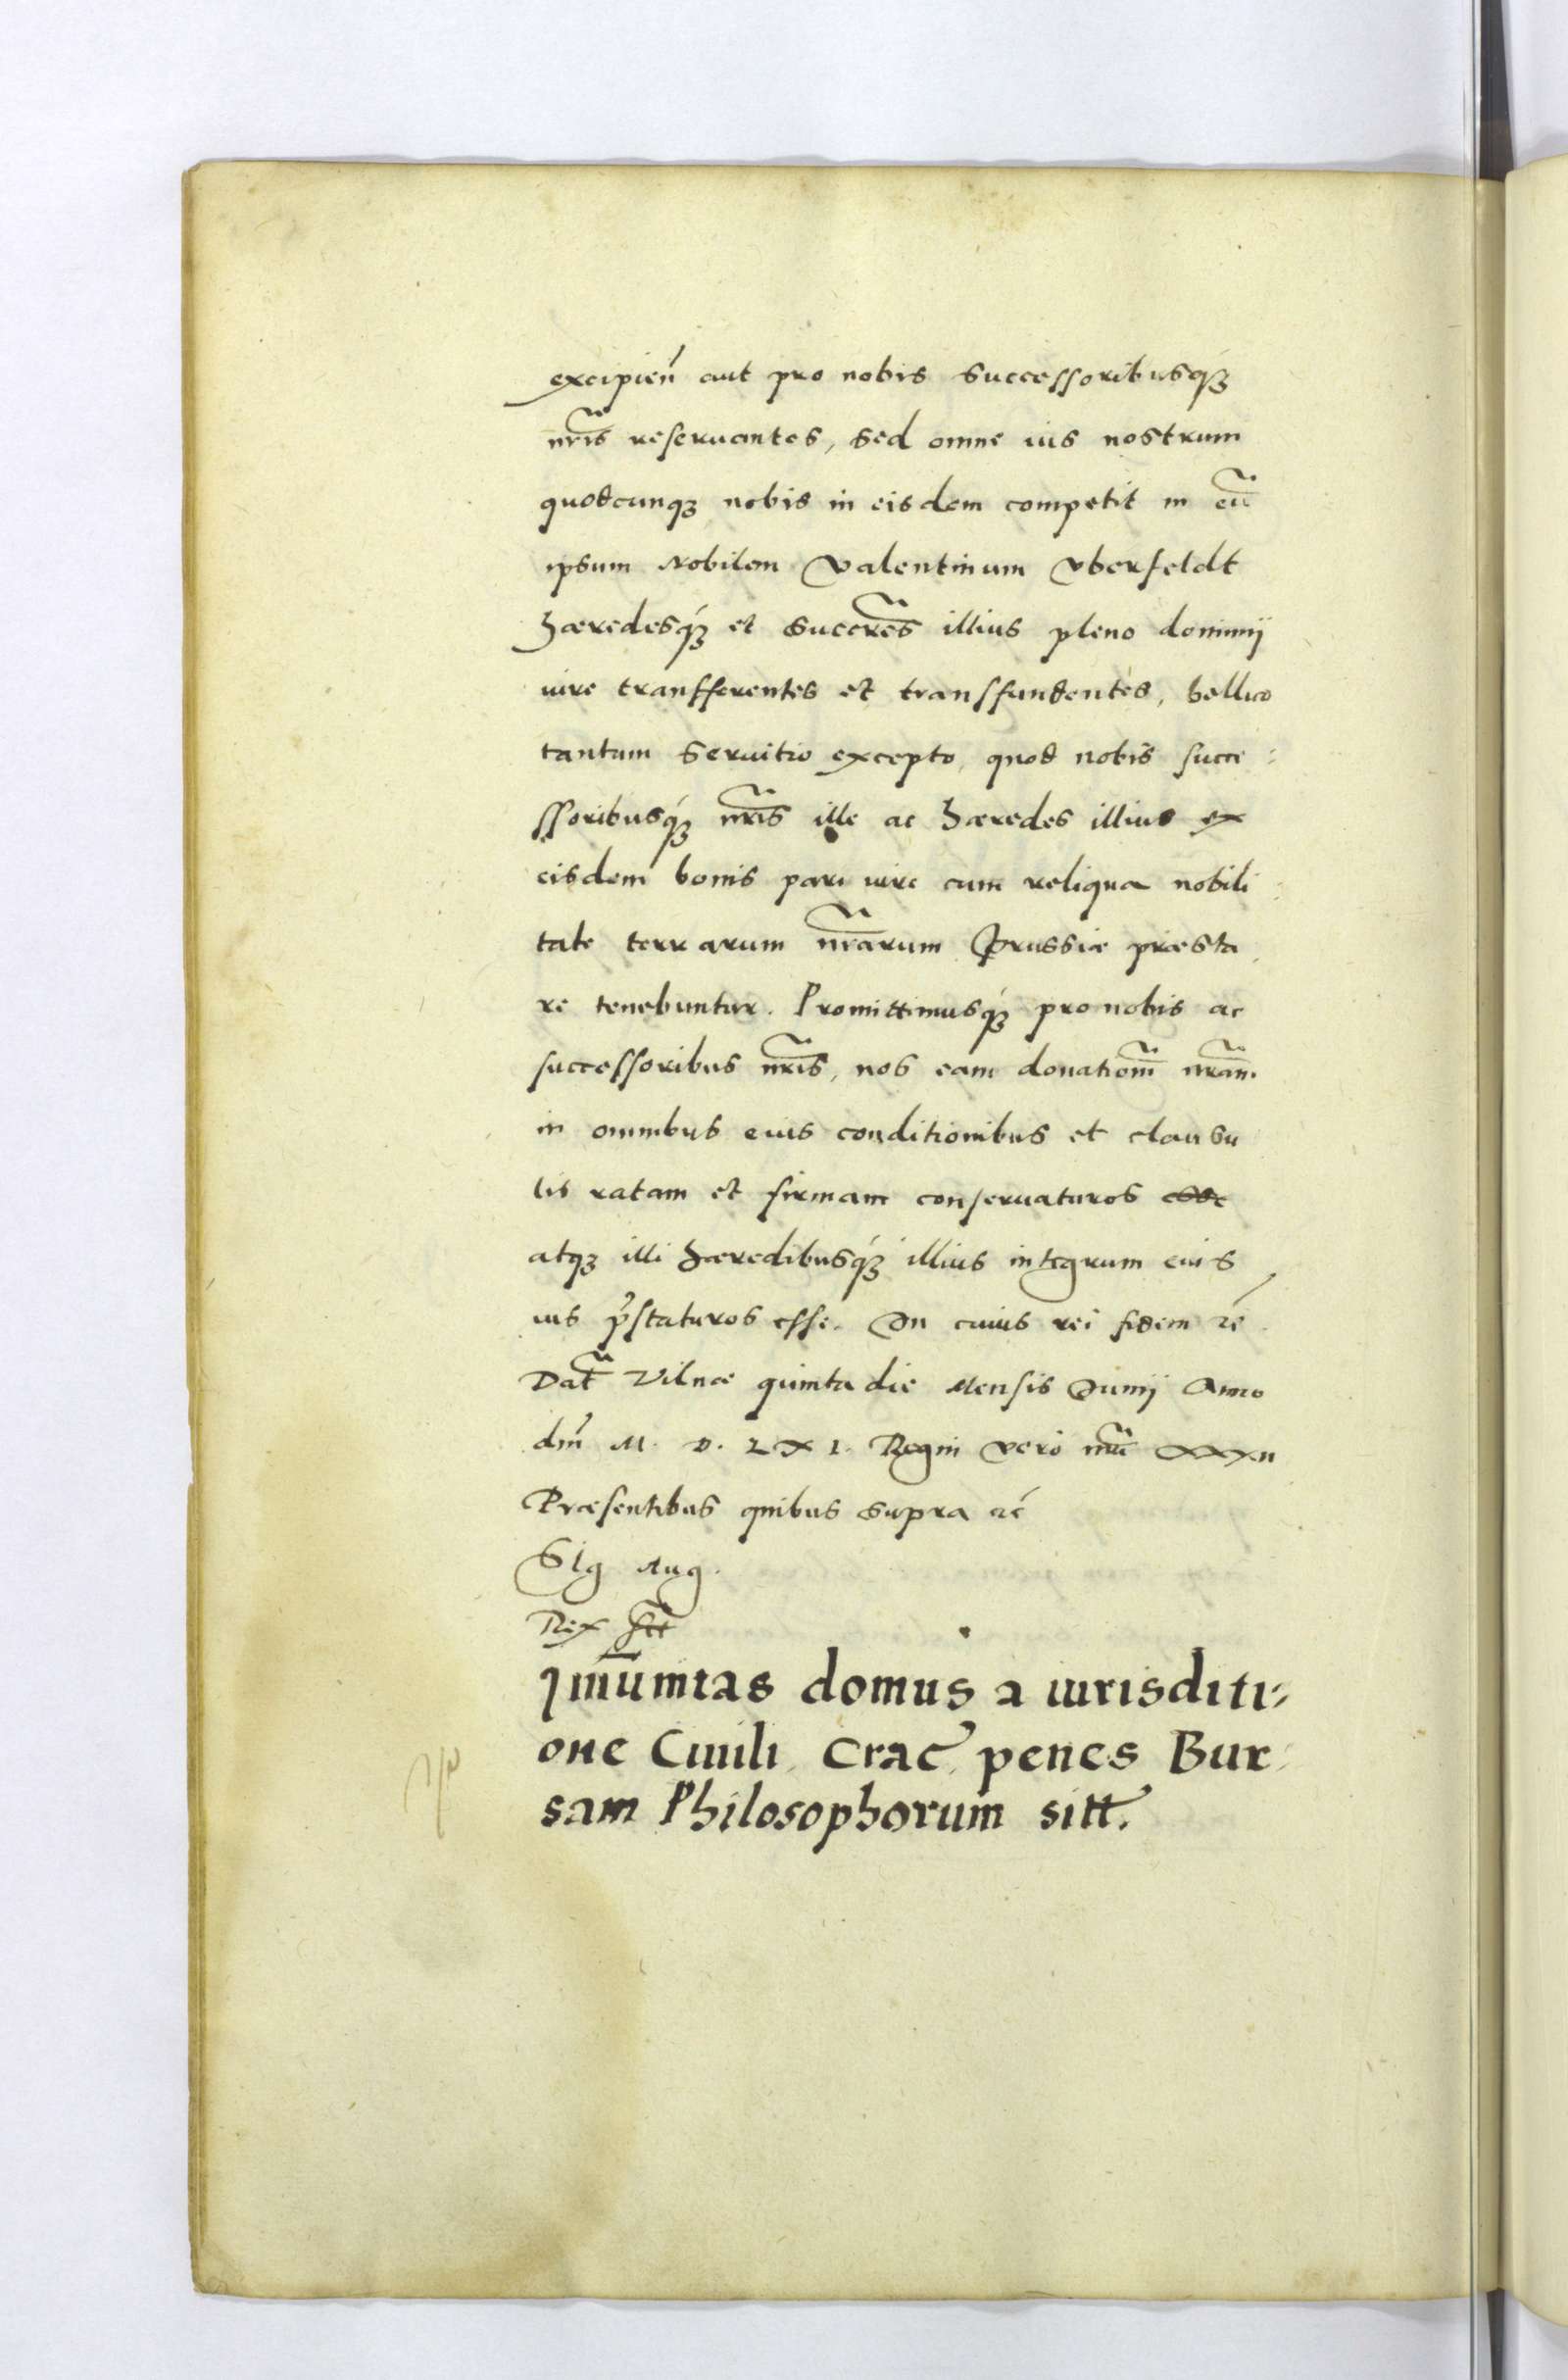 excipien̄ aut pro nobis successoribusq́ꝫ
nr̃is reseruantes, sed omne ius nostrum
quodcunqꝫ nobis in eisdem competit in eũ
ipsum Nobilem Valentinum Vberfeldt
hæredesq́ꝫ et succr̃es illius pleno dominij
iure transferentes et transfundentes, bellico
tantum seruitio excepto, quod nobis succe-
ssoribusq́ꝫ nr̃is ille ac hæredes illius ex
eisdem bonis pari iure cum reliqua nobili
tate terrarum nr̃arum Prussiæ præsta
re tenebuntur. Promittimusq́ꝫ pro nobis ac
successoribus nr̃is, nos eam donatiom̃ nr̃am
in omnibus eius conditionibus et clausu
lis ratam et firmam conseruaturos esse
atqꝫ illi hæredibusq́ꝫ illius integrum eius
ius p̄staturos esse. In cuius rei fidem ꝛc̄
Dat̃ Vilnæ quinta die Mensis Junij Anno
dn̄i M. D. LXI. Regni vero nr̃i XXXII
Præsentibus quibus supra ꝛc̄
Sig Aug.
Rex sst̃
Jm̄unitas domus a iurisditi-
one Ciuili Crac̄ penes Bur-
sam Philosophorum sitt̄.